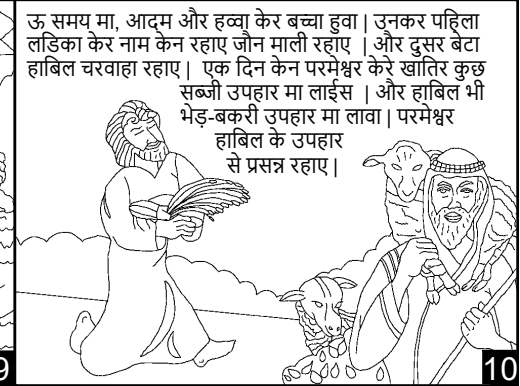 ऊ समय मा, आदम और हव्वा केर बच्चा हुवा | उनकर पहिला
लडिका केर नाम केन रहाए जौन माली रहाए | और दुसर बेटा
हाबिल चरवाहा रहाए | एक दिन केन परमेश्वर केरे खातिर कुछ
सब्जी उपहार मा लाईस | और हाबिल भी
भेड़-बकरी उपहार मा लावा | परमेश्वर
हाबिल के उपहार
से प्रसन्न रहाए |
9
10